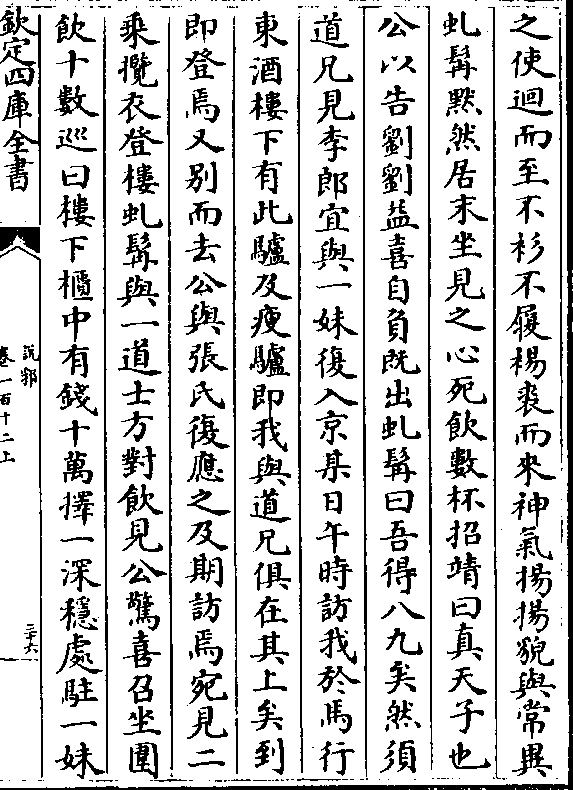 之使迴而至不衫不履裼裘而來神氣揚揚貌與常異
虬髯默然居末坐見之心死飲數杯招靖曰真天子也
公以告劉劉益喜自負既出虬髯曰吾得八九矣然須
道兄見李郎宜與一妹復入京某日午時訪我於馬行
東酒樓下有此驢及瘦驢即我與道兄俱在其上矣到
即登焉又别而去公與張氏復應之及期訪焉宛見二
乘攬衣登樓虬髯與一道士方對飲見公驚喜召坐圍
飲十數巡曰樓下櫃中有錢十萬擇一深穩處駐一妹
欽定四庫全書
說郛
卷一百十二上
三十六